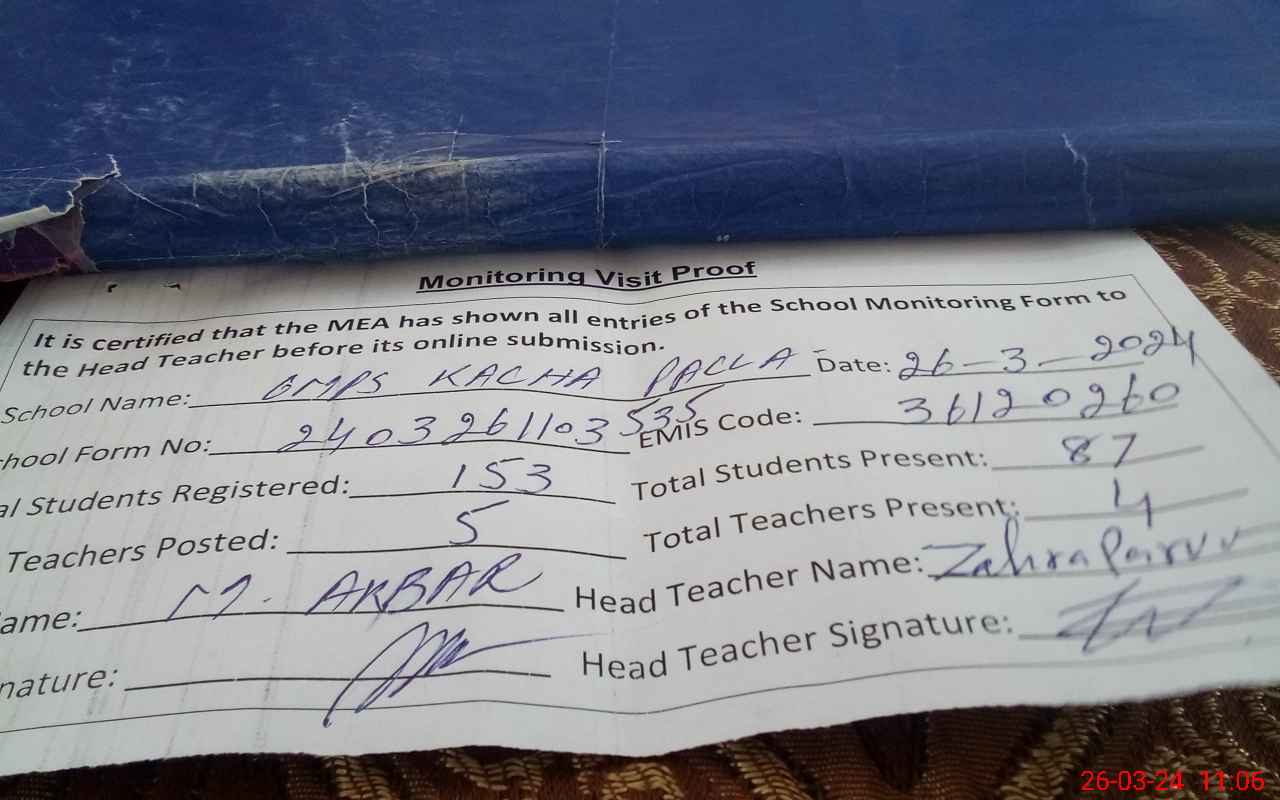 Monitoring Visit Proof
It is certified that the MEA has shown all entries of the School Monitoring Form to
the Head Teacher before its online submission.
School Name: GMPS KACHA PACCA Date: 26-3-2024
hool Form No: 2403261103535 EMIS Code: 36120260
al Students Registered: 153 Total Students Present: 87
Teachers Posted: 5 Total Teachers Present: 4
ame: M. AKBAR Head Teacher Name: Zahra
nature: Head Teacher Signature:
26-03-24 11:06